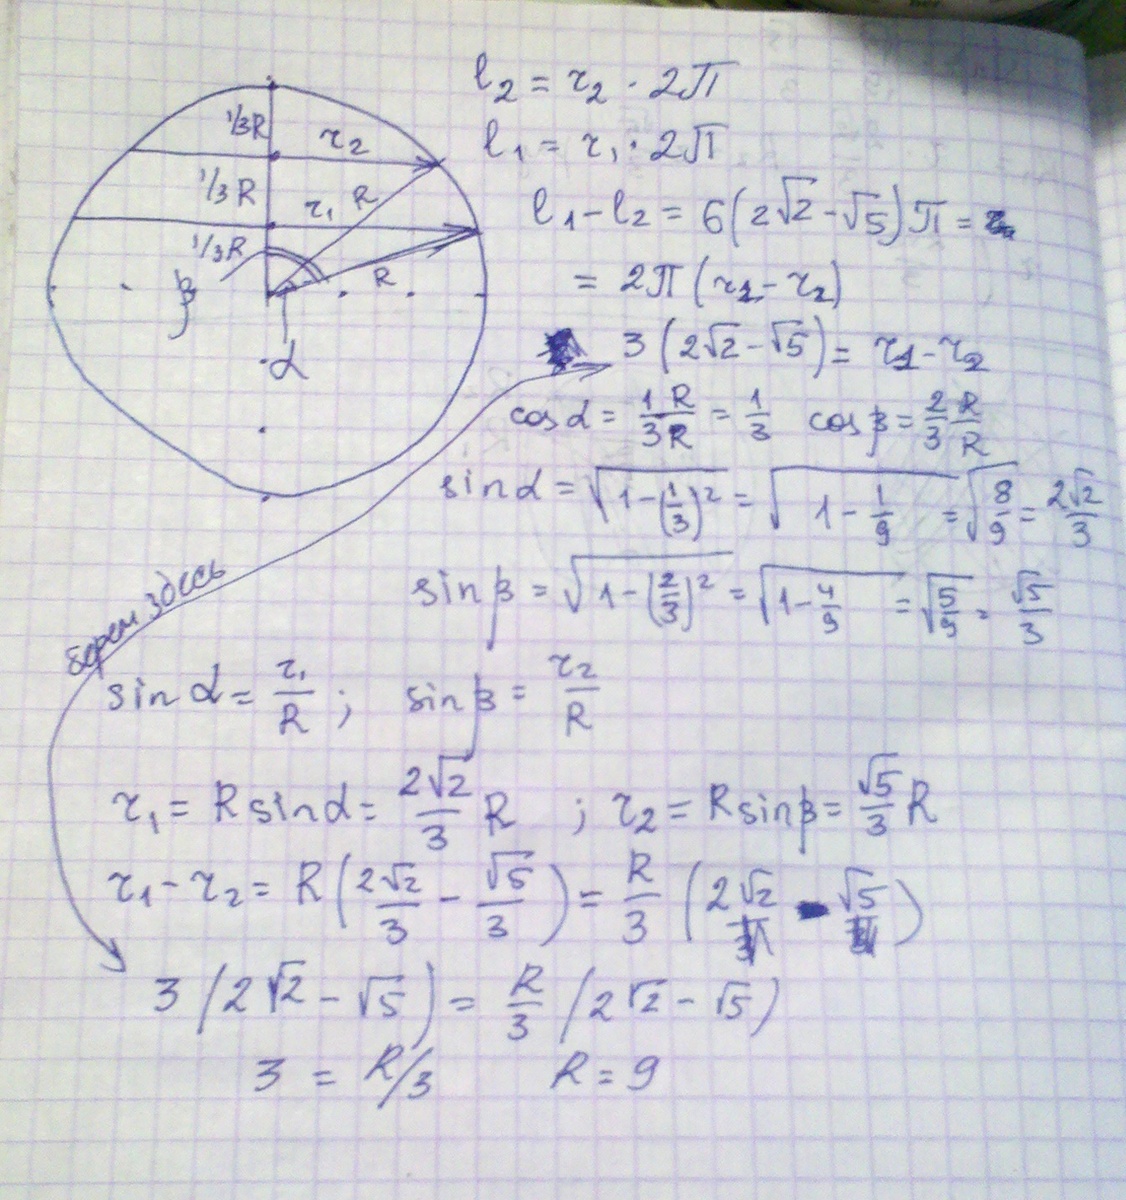 1/3R
r₂
1/3 R
r₁
R
1/3 R
R
β
α
l₂ = r₂ · 2π
l₁ = r₁ · 2π
l₁ - l₂ = 6(2√2 - √5)π =
= 2π(r₁ - r₂)
3(2√2 - √5) = r₁ - r₂
cos α = 1/3 R/R = 1/3 cos β = 2/3 R/R
sin α = √(1 - (1/3)²) = √(1 - 1/9) = √(8/9) = 2√2/3
sin β = √(1 - (2/3)²) = √(1 - 4/9) = √(5/9) = √5/3
берем здесь
sin α = r₁/R ; sin β = r₂/R
r₁ = R sin α = 2√2/3 R ; r₂ = R sin β = √5/3 R
r₁ - r₂ = R(2√2/3 - √5/3) = R/3 (2√2 - √5)
3(2√2 - √5) = R/3 (2√2 - √5)
3 = R/3 R = 9